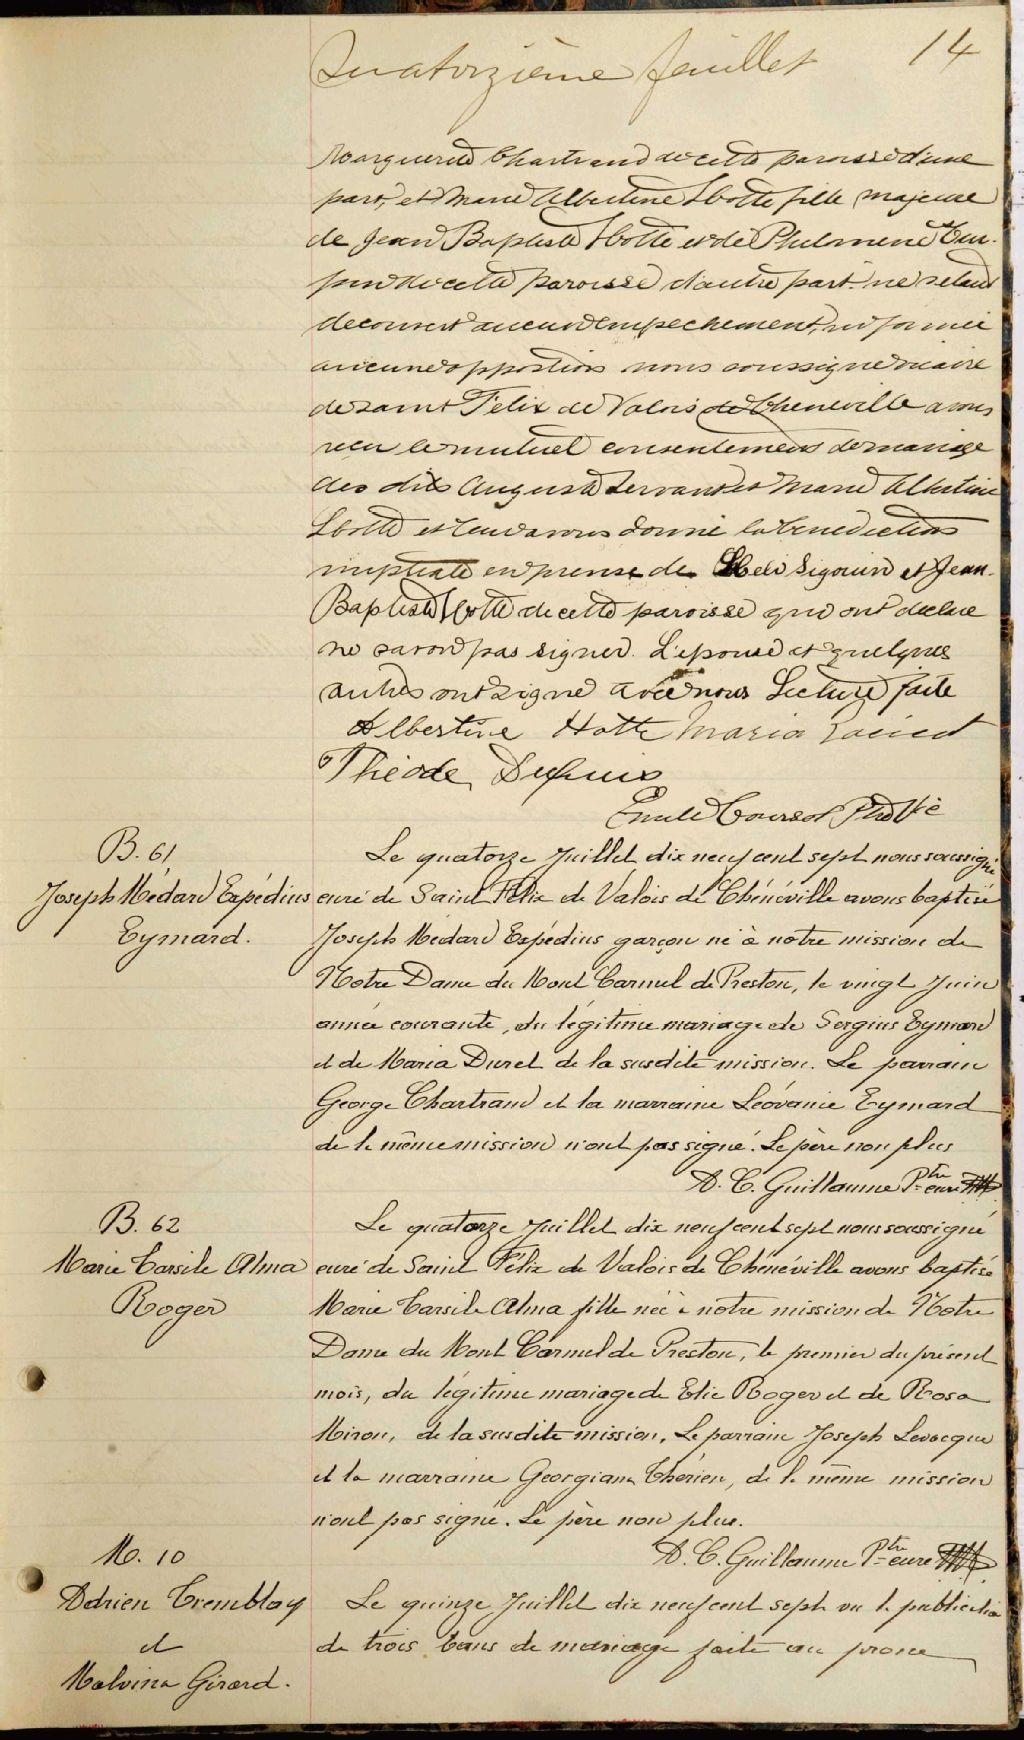 Quatorzième feuillet 14
Marguerite Chartrand de cette paroisse d'une
part, et Marie Albertine Hotte fille majeure
de Jean Baptiste Hotte et de Philomene
de cette paroisse d'autre part. ne setant
decouvert aucun empechement, ni formée
aucune opposition nous soussigné vicaire
de saint Felix de Valois de Cheneville avons
reçu le mutuel consentement de mariage
des dits August Servant et Marie Albertine
Hotte et leur avons donné la benediction
nuptiale en presence de Sigouin et Jean-
Baptiste Hotte de cette paroisse qui ont declare
ne savoir pas signer. L'epouse et quelques
autres ont signé avec nous Lecture faite
Albertine Hotte Maria
Théode Dupuis
Emile Coursol Ptre Vic
B. 61
Joseph Médard Expédius
Eymard.
Le quatorze Juillet dix neuf cent sept nous soussigné
curé de Saint Félix de Valois de Chénéville avons baptisé
Joseph Médard Expédius garçon né à notre mission de
Notre Dame du Mont Carmel de Preston, le vingt Juin
année courante, du légitime mariage de Sergius Eymard
et de Maria Duret de la susdite mission. Le parrain
George Chartrand et la marraine Léovanie Eymard
de la même mission n'ont pas signé. Le père non plus
A. C. Guillaume Ptre curé
B. 62
Marie Tarsile Alma
Roger
Le quatorze Juillet dix neuf cent sept nous soussigné
curé de Saint Félix de Valois de Chénéville avons baptisé
Marie Tarsile Alma fille née à notre mission de Notre
Dame du Mont Carmel de Preston, le premier du présent
mois, du légitime mariage de Elie Roger et de Rosa
Miron, de la susdite mission. Le parrain Joseph Levacque
et la marraine Georgiana Thérien, de la même mission
n'ont pas signé. Le père non plus.
A. C. Guillaume Ptre curé
M. 10
Adrien Tremblay
et
Malvina Girard.
Le quinze Juillet dix neuf cent sept vu la publication
de trois bans de mariage faite au prone